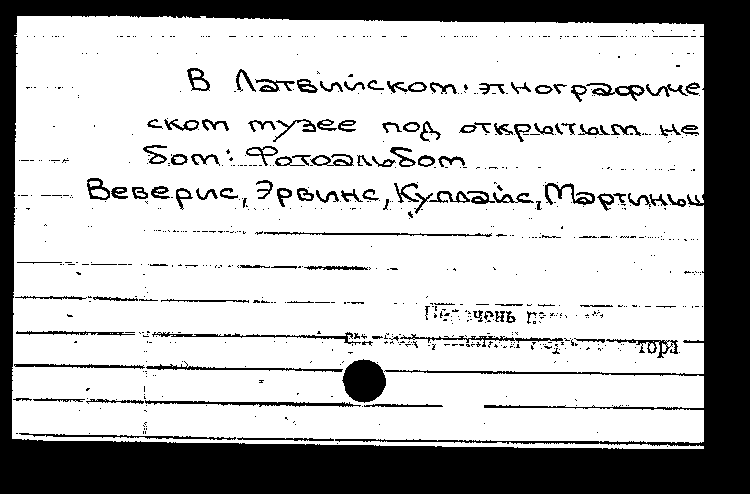 В Латвийском этнографиче
ском музее под открытым не
бом: Фотоальбом
Веверис, Эрвинс, Куплайс, Мартиньш
Перечень
под тора